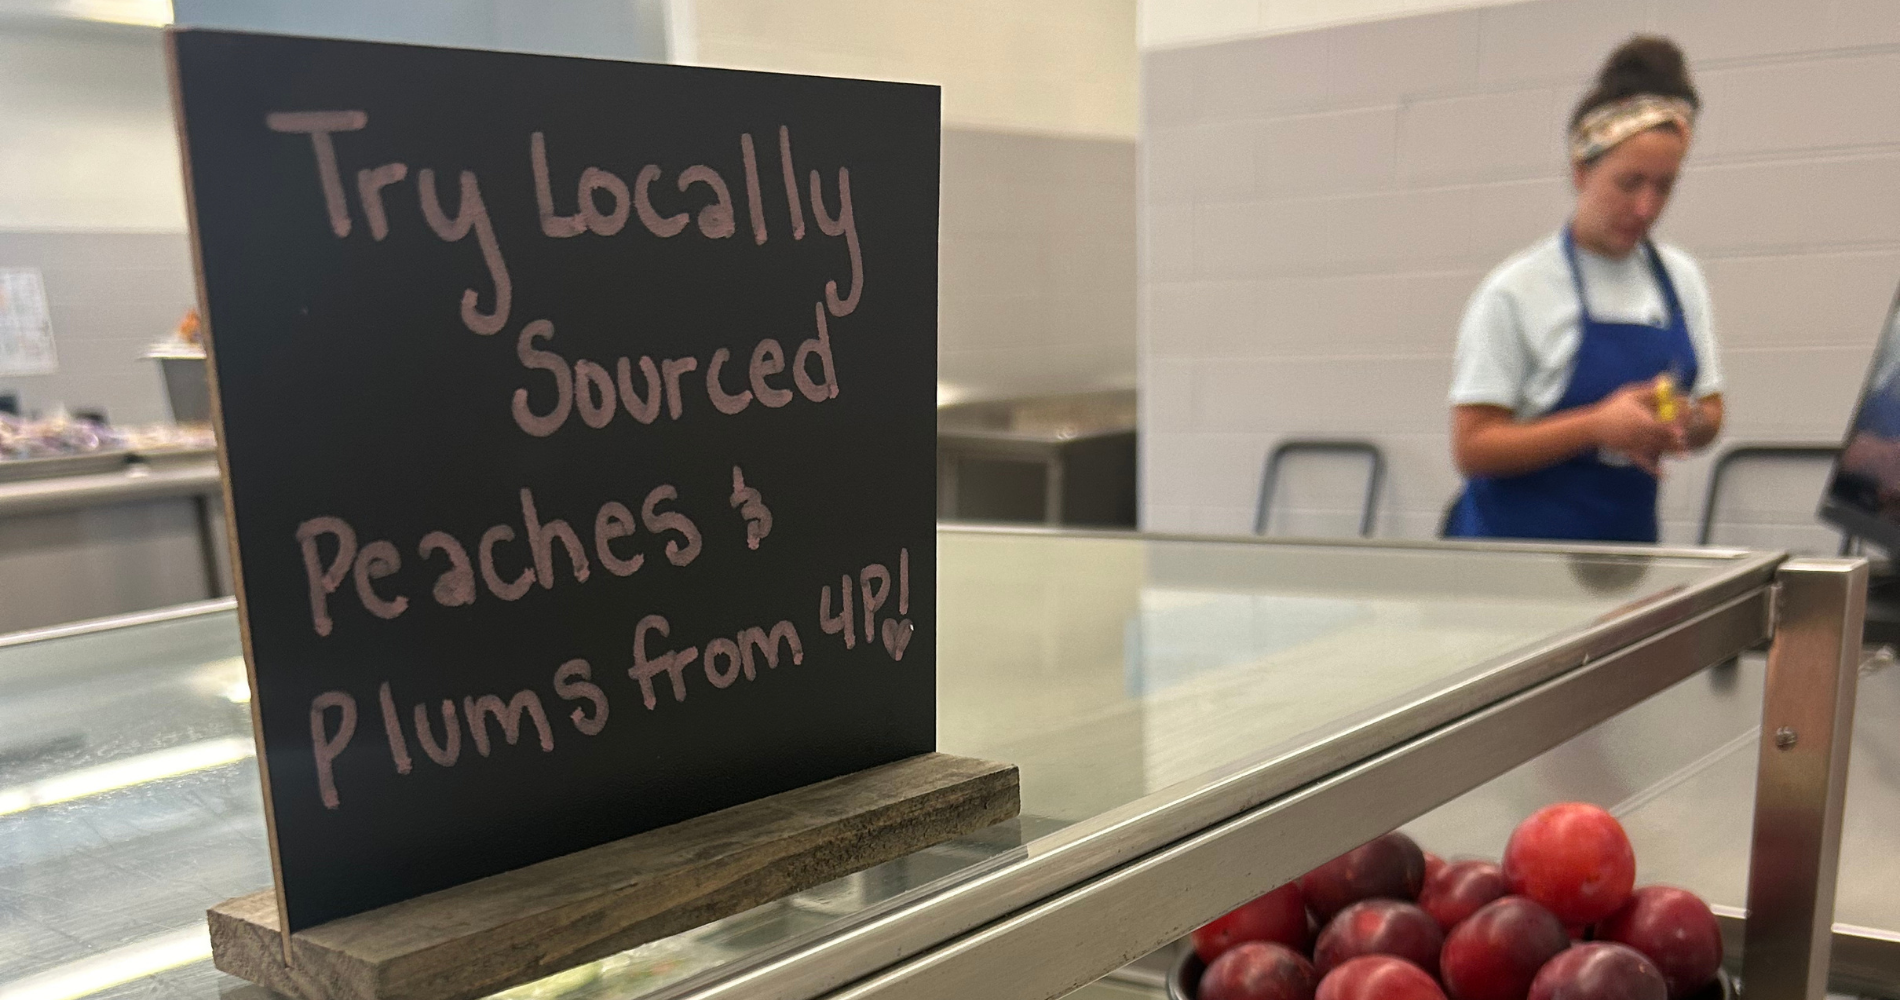 Try Locally
Sourced
Peaches &
Plums from 4P!